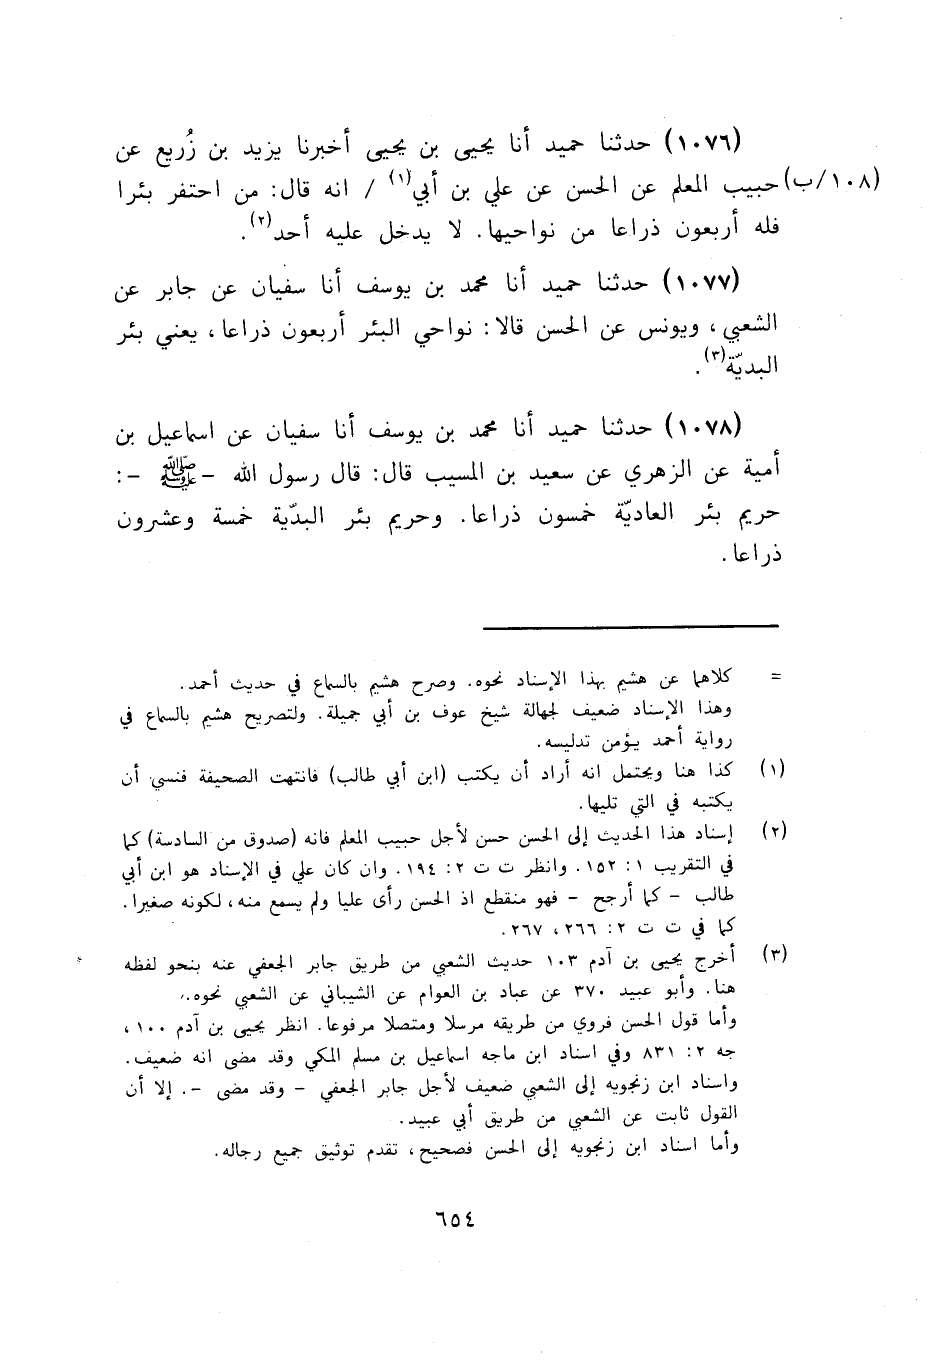 (١٠٧٦) حدثنا حميد أنا يحيى بن يحيى أخبرنا يزيد بن زُريع عن
(١٠٨/ب) حبيب المعلم عن الحسن عن علي بن أبي(١) / انه قال: من احتفر بئرا
فله أربعون ذراعا من نواحيها. لا يدخل عليه أحد(٢).
(١٠٧٧) حدثنا حميد أنا محمد بن يوسف أنا سفيان عن جابر عن
الشعبي، ويونس عن الحسن قالا: نواحي البئر أربعون ذراعا، يعني بئر
البديّة(٣).
(١٠٧٨) حدثنا حميد أنا محمد بن يوسف أنا سفيان عن اسماعيل بن
أمية عن الزهري عن سعيد بن المسيب قال: قال رسول الله - ﷺ -:
حريم بئر العاديّة خمسون ذراعا. وحريم بئر البدّية خمسة وعشرون
ذراعا.
= كلاهما عن هشيم بهذا الإسناد نحوه. وصرح هشيم بالسماع في حديث أحمد.
وهذا الإسناد ضعيف لجهالة شيخ عوف بن أبي جميلة. ولتصريح هشيم بالسماع في
رواية أحمد يؤمن تدليسه.
(١) كذا هنا ويحتمل انه أراد أن يكتب (ابن أبي طالب) فانتهت الصحيفة فنسي أن
يكتبه في التي تليها.
(٢) إسناد هذا الحديث إلى الحسن حسن لأجل حبيب المعلم فانه (صدوق من السادسة) كما
في التقريب ١: ١٥٢. وانظر ت ت ٢: ١٩٤. وان كان علي في الإسناد هو ابن أبي
طالب - كما أرجح - فهو منقطع اذ الحسن رأى عليا ولم يسمع منه، لكونه صغيرا.
كما في ت ت ٢: ٢٦٦، ٢٦٧.
(٣) أخرج يحيى بن آدم ١٠٣ حديث الشعبي من طريق جابر الجعفي عنه بنحو لفظه
هنا. وأبو عبيد ٣٧٠ عن عباد بن العوام عن الشيباني عن الشعبي نحوه.
وأما قول الحسن فروي من طريقه مرسلا ومتصلا مرفوعا. انظر يحيى بن آدم ١٠٠،
جه ٢: ٨٣١ وفي اسناد ابن ماجه اسماعيل بن مسلم المكي وقد مضى انه ضعيف.
واسناد ابن زنجويه إلى الشعبي ضعيف لأجل جابر الجعفي - وقد مضى -. إلا أن
القول ثابت عن الشعبي من طريق أبي عبيد.
وأما اسناد ابن زنجويه إلى الحسن فصحيح، تقدم توثيق جميع رجاله.
٦٥٤